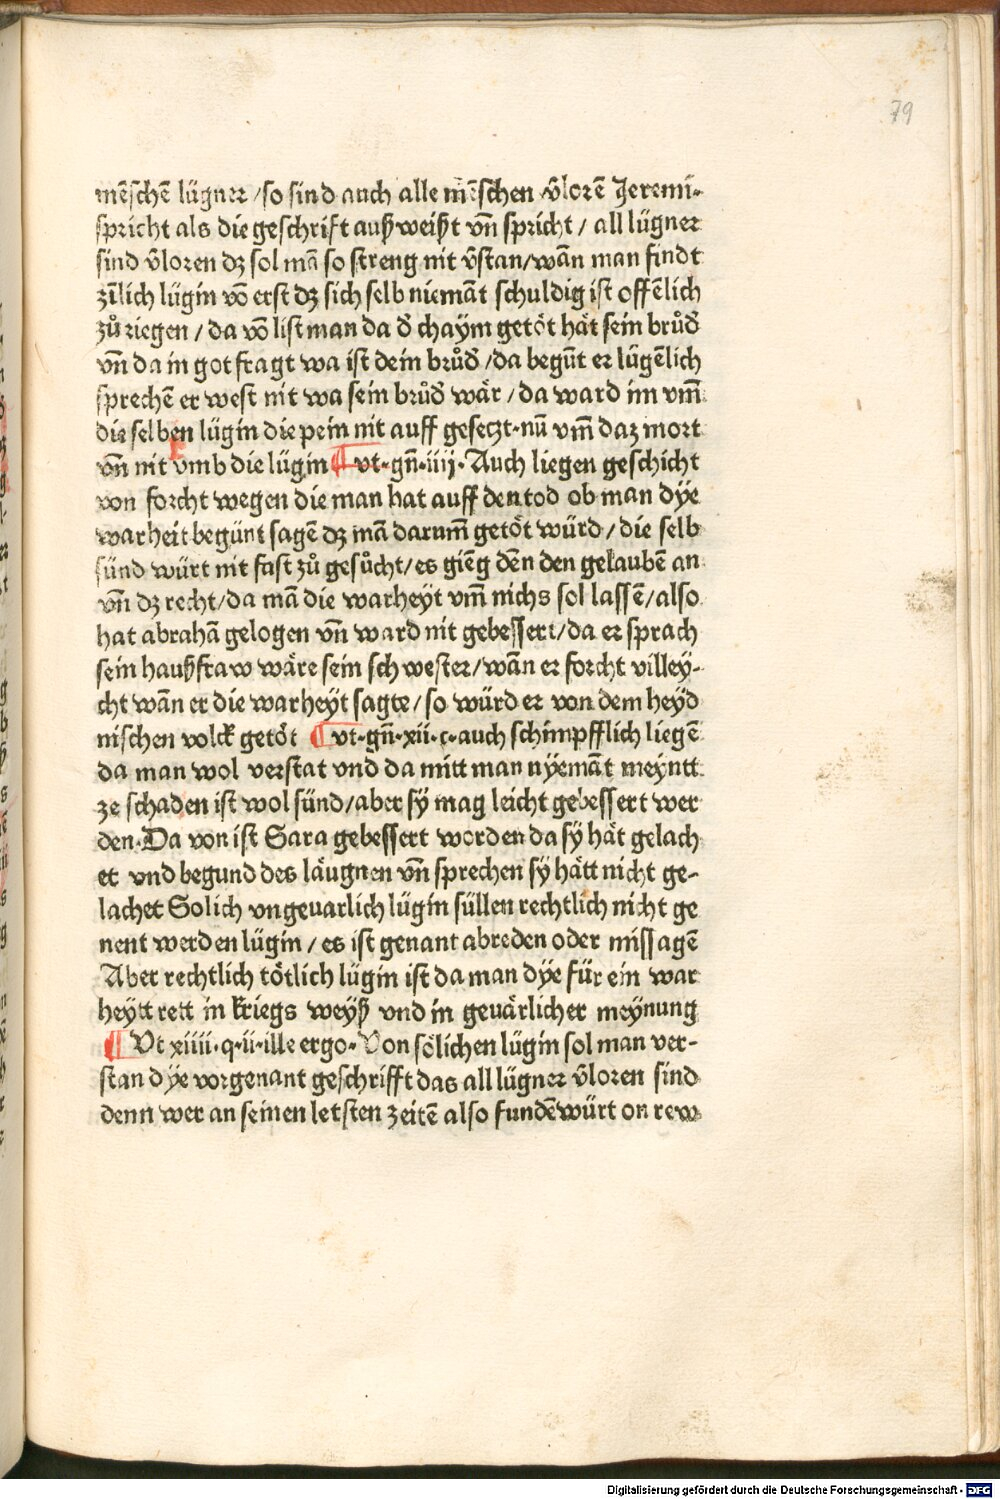 79
mēschē lügner /so sind auch alle mēschen v̄lorē Jeremi-
spricht als die geschrift außweißt vn̄ spricht / all lügner
sind v̄loren dz sol mā so streng nit v̄stan/wān man findt
zīlich lügin vō erst dz sich selb niemāt schuldig ist offēlich
zů riegen / da vō list man da d̄ chaym getöt hät sein brůd̄
vn̄ da in got fragt wa ist dein brůd̄ /da begūt er lügēlich
sprechē er west nit wa sein brůd̄ wär / da ward im vm̄
die selben lügin die pein nit auff gesetzt·nū vm̄ daz mort
vn̄ nit vmb die lügin ¶vt·gn̄·iiij·Auch liegen geschicht
von forcht wegen die man hat auff den tod ob man dÿe
warheit begünt sagē dz mā darum̄ getöt würd / die selb
sünd würt nit fast zů gesůcht/es giēg dēn den gelaubē an
vn̄ dz recht/da mā die warheÿt vm̄ nichs sol lassē/also
hat abrahā gelogen vn̄ ward nit gebessert/da er sprach
sein haußfraw wäre sein schwester/wān er forcht villeÿ-
cht wān er die warheÿt sagte/so würd er von dem heÿd
nischen volck getöt ¶vt·gn̄·xii·c·auch schimpfflich liegē
da man wol verstat vnd da mitt man nÿemāt meÿntt
ze schaden ist wol sünd/aber sÿ mag leicht gebessert wer
den·Da von ist Sara gebessert worden da sÿ hät gelach
et vnd begund des läugnen vn̄ sprechen sÿ hätt nicht ge-
lachet Solich vngeuarlich lügin süllen rechtlich nicht ge
nent werden lügin / es ist genant abreden oder missagē
Aber rechtlich tötlich lügin ist da man dÿe für ein war
heÿtt rett in kriegs weÿß vnd in geuärlicher meÿnung
¶Vt xiiii·q·ii·ille ergo· Von sölichen lügin sol man ver-
stan dÿe vorgenant geschrifft das all lügner v̄loren sind
denn wer an seinen letsten zeitē also fundē würt on rew
Digitalisierung gefördert durch die Deutsche Forschungsgemeinschaft - DFG